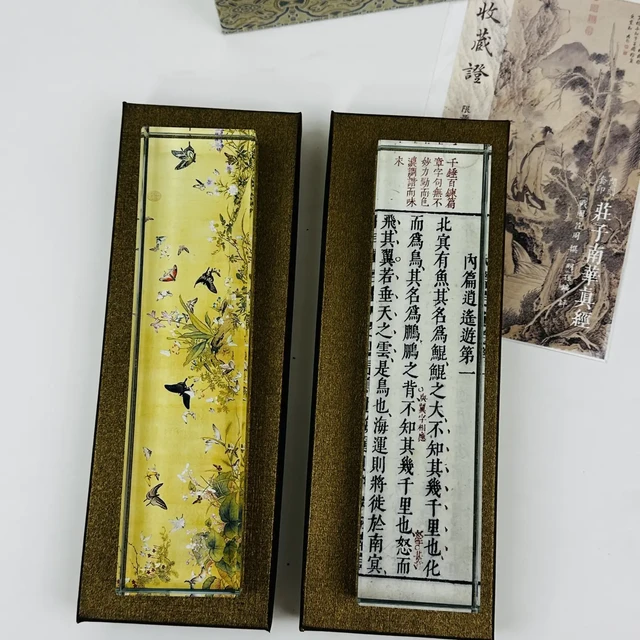 收藏證
莊子南華真經
千錘百鍊篇
章字句無不
妙力勁而色
濃調諧而味
內篇逍遙遊第一
北㝠有魚其名爲鯤鯤之大不知其幾千里也化
而爲鳥其名爲鵬鵬之背不知其幾千里也怒而
飛其翼若垂天之雲是鳥也海運則將徙於南㝠